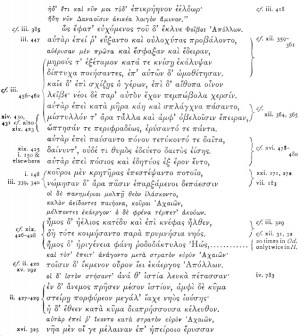 ἠδ' ἔτι καὶ νῦν μοι τόδ' ἐπικρήηνον ἐέλδωρ·
ἤδη νῦν Δαναοῖσιν ἀεικέα λοιγὸν ἄμυνον."
ὣς ἔφατ' εὐχόμενος τοῦ δ' ἔκλυε Φοῖβος Ἀπόλλων.
αὐτὰρ ἐπεί ῥ' εὔξαντο καὶ οὐλοχύτας προβάλοντο,
αὐέρυσαν μὲν πρῶτα καὶ ἔσφαξαν καὶ ἔδειραν,
μηρούς τ' ἐξέταμον κατά τε κνίσῃ ἐκάλυψαν
δίπτυχα ποιήσαντες, ἐπ' αὐτῶν δ' ὠμοθέτησαν.
καῖε δ' ἐπὶ σχίζῃς ὁ γέρων, ἐπὶ δ' αἴθοπα οἶνον
λεῖβε· νέοι δὲ παρ' αὐτὸν ἔχον πεμπώβολα χερσίν.
αὐτὰρ ἐπεὶ κατὰ μῆρα κάη καὶ σπλάγχνα πάσαντο,
μίστυλλόν τ' ἄρα τἆλλα καὶ ἀμφ' ὀβελοῖσιν ἔπειραν,
ὤπτησάν τε περιφραδέως, ἐρύσαντό τε πάντα.
αὐτὰρ ἐπεὶ παύσαντο πόνου τετύκοντό τε δαῖτα,
δαίνυντ', οὐδέ τι θυμὸς ἐδεύετο δαιτὸς ἐίσης.
αὐτὰρ ἐπεὶ πόσιος καὶ ἐδητύος ἐξ ἔρον ἕντο,
κοῦροι μὲν κρητῆρας ἐπεστέψαντο ποτοῖο,
νώμησαν δ' ἄρα πᾶσιν ἐπαρξάμενοι δεπάεσσιν
οἱ δὲ πανημέριοι μολπῇ θεὸν ἱλάσκοντο,
καλὸν ἀείδοντες παιήονα, κοῦροι Ἀχαιῶν,
μέλποντες ἑκάεργον· ὁ δὲ φρένα τέρπετ' ἀκούων.
ἦμος δ' ἠέλιος κατέδυ καὶ ἐπὶ κνέφας ἦλθεν,
δὴ τότε κοιμήσαντο παρὰ πρυμνήσια νηός,
ἦμος δ' ἠριγένεια φάνη ῥοδοδάκτυλος Ἠώς,
καὶ τότ' ἔπειτ' ἀνάγοντο μετὰ στρατὸν εὐρὺν Ἀχαιῶν·
τοῖσιν δ' ἴκμενον οὖρον ἵει ἑκάεργος Ἀπόλλων.
οἱ δ' ἱστὸν στήσαντ' ἀνά θ' ἱστία λευκὰ πέτασσαν
ἐν δ' ἄνεμος πρῆσεν μέσον ἱστίον, ἀμφὶ δὲ κῦμα
στείρῃ πορφύρεον μεγάλ' ἴαχε νηὸς ἰούσης·
ἡ δ' ἔθεεν κατὰ κῦμα διαπρήσσουσα κέλευθον.
αὐτὰρ ἐπεί ῥ' ἵκοντο κατὰ στρατὸν εὐρὺν Ἀχαιῶν,
νῆα μὲν οἵ γε μέλαιναν ἐπ' ἠπείροιο ἔρυσσαν
cf. iii. 385
iii. 447
cf. iii.
456-462
xiv. 430,
xix. 423
xix. 425
i. 150 &
elsewhere
i. 148
iii. 339, 340
cf. xix.
426-428
cf. ii. 420
xv. 292
ii. 427-429
cf. xvi. 325
cf. iii. 418
cf. xii. 359-
361
cf. xii. 364, 365
cf. xvi. 478-
480
xxi. 271, 272
vii. 183
cf. iii. 329
cf. xii. 31, 32
20 times in Od.
only twice in Il.
iv. 783